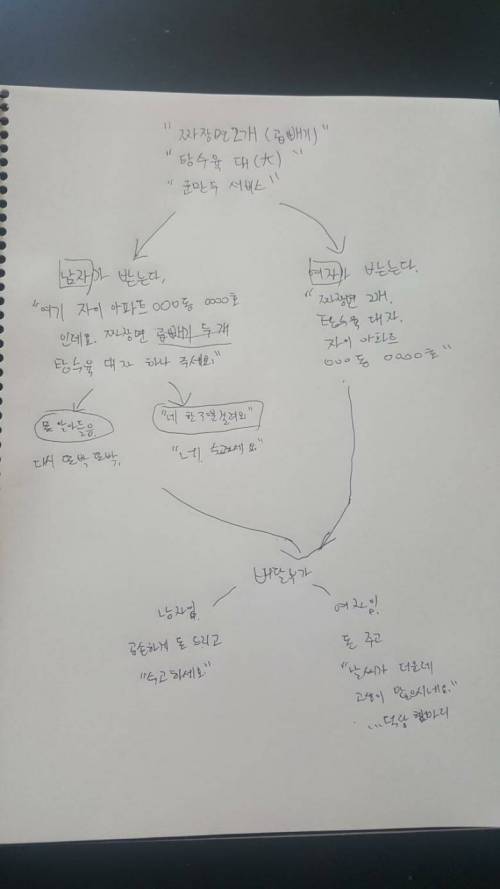 "짜장면 2개 (곱빼기)"
"탕수육 대 (大)"
"군만두 서비스"
남자가 받는다.
"여기 자이 아파트 000동 0000호
인데요. 짜장면 곱빼기 두개
탕수육 대자 하나 주세요."
못 알아들음
다시 또박 또박.
"네 한 걸려요"
"네, 수고하세요"
여자가 받는다.
"짜장면 2개.
탕수육 대자.
자이 아파트
000동 0000호"
배달부가
남자임.
공손하게 돈 드리고
"수고하세요"
여자임.
돈 주고
"날씨가 더운데
고생이 많으시네요."
...덕담 한마디